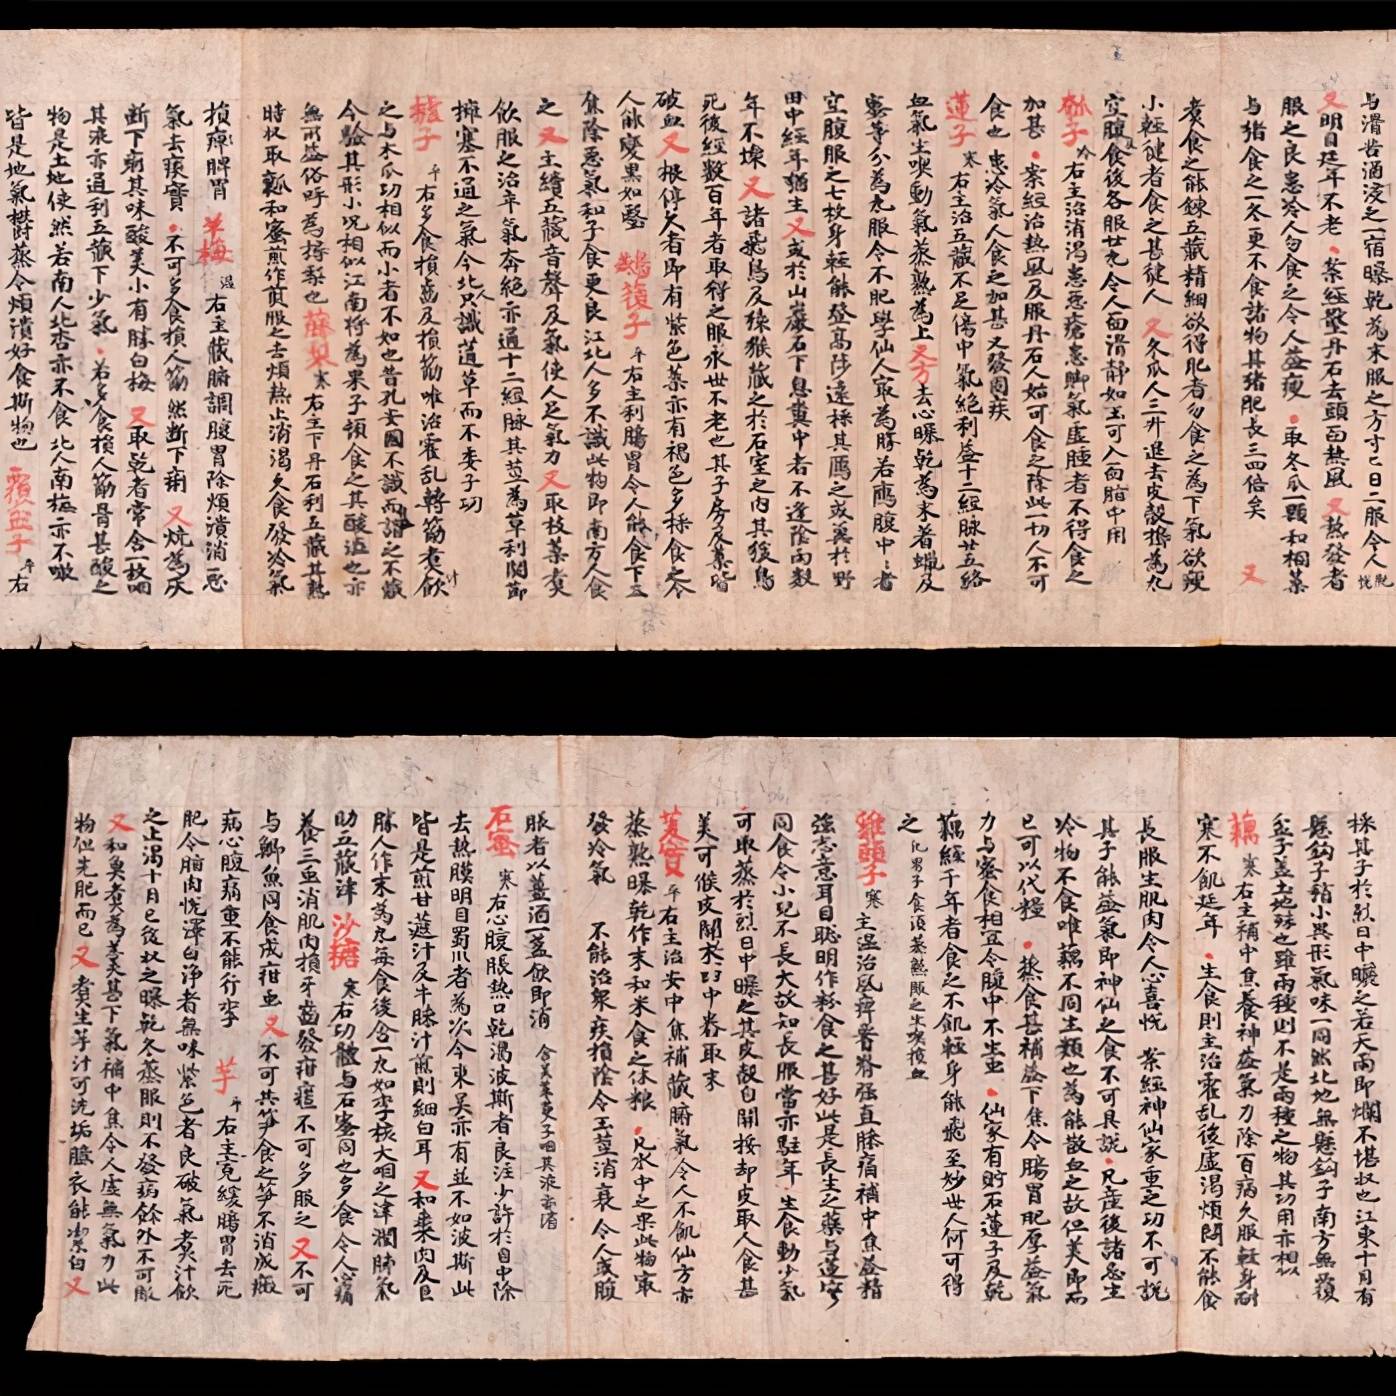 与濳昔酒浸之一宿曝乾為末服之方寸匕日二服令人肥悦
又明目延年不老·案經壓丹石去頭面熱風 又熱發者
服之良患冷人勿食之令人益瘦·取冬瓜一顆和桐葉
与猪食之一冬更不食諸物其猪肥長三四倍矣 又
煮食之能鍊五藏精細欲得肥者勿食之為下氣欲瘦
小輕健者食之甚健人 又冬瓜人三升退去皮殼擣為丸
空腹及食後各服廿丸令人面滑静如玉可入面脂中用
瓠子冷 右主治消渴患惡瘡患脚氣虛腫者不得食之
加甚·案經治熱風及服丹石人始可食之除此一切人不可
食也 患冷氣人食之加甚又發固疾
蓮子寒 右主治五藏不足傷中氣絶利益十二經脉廿五絡
血氣生喫動氣蒸熟為上 又方去心曝乾為末着蠟及
蜜等分為丸服令不肥學仙人㝡為勝若鴈腹中者
空腹服之七枚身輕能登高陟遠採其鴈之或糞於野
田中經年猶生 又或於山巖石下息糞中者不逢陰雨數
年不壞 又諸飛鳥及猿猴藏之於石室之内其猨鳥
死後經數百年者取得之服永世不老也其子房及葉皆
破血 又根停久者即有紫色葉亦有褐色多採食之令
人能變黑如瑿 鷰蕧子平 右主利腸胃令人能食下三
焦除惡氣和子食更良 江北人多不識此物即南方人食
之 又主續五藏音聲及氣使人足氣力 又取枝葉煮
飲服之治卒氣奔絶亦通十二經脉其莖為草利關節
擁塞不通之氣今北人只識䔥草而不委子功
樝子平 右多食損齒及損筋唯治霍乱轉筋煮汁飲
之与木瓜功相似而小者不如也昔孔安國不識而謂之不藏
今驗其形小况相似江南将為果子頓食之其酸澁也亦
無所益俗呼為摶梨也 藤梨寒 右主下丹石利五藏其熟
時收取瓤和蜜煎作煎服之去煩熱止消渴久食發冷氣
損痺脾胃 羊梅温 右主藏腑調腹胃除煩潰消惡
氣去痰實·不可多食損人筋然断下痢 又燒為灰
断下痢其味酸美小有勝白梅 又取乾者常含一枚咽
其液亦通利五藏下少氣·若多食損人筋骨甚酸之
物是土地使然若南人北杏亦不食北人南梅亦不噉
皆是地氣欝蒸令煩潰好食斯物也 覆盆子平 右
採其子於烈日中曬之若天雨即爛不堪收也江東十月有
懸鈎子稍小異形氣味一同然北地無懸鈎子南方無覆
盆子盖土地殊也雖兩種則不是兩種之物其功用亦相似
藕寒 右主補中焦養神益氣力除百病久服輕身耐
寒不飢延年·生食則主治霍乱後虛渴煩悶不能食
長服生肌肉令人心喜悦 案經神仙家重之功不可說
其子能益氣即神仙之食不可具說·凡産後諸忌生
冷物不食唯藕不同生類也為能散血之故但美即而
已可以代糧·蒸食甚補益下焦令腸胃肥厚益氣
力与蜜食相宜令腹中不生虫·仙家有貯石蓮子及乾
藕經千年者食之不飢輕身能飛至妙世人何可得
之 凡男子食須蒸熟服之生喫損血
雞頭子寒 主温治風痺署脊强直膝痛補中焦益精
強志意耳目聡明作粉食之甚好此是長生之藥与蓮實
同食令小兒不長大故知長服當亦駐年·生食動少氣
可取蒸於烈日中曝之其皮殼自開挼却皮取人食甚
美可候皮開於臼中舂取末
菱實平 右主治安中焦補藏腑氣令人不飢仙方亦
蒸熟曝乾作末和米食之休粮·凡水中之果此物㝡
發冷氣 不能治衆疾損陰令玉莖消衰令人或腹
脹者以薑酒一盞飲即消 含吴茱萸子咽其液亦消
石蜜寒 右心腹脹熱口乾渴波斯者良注少許於目中除
去熱膜明目蜀川者為次今東吴亦有並不如波斯此
皆是煎甘蔗汁及牛膝汁煎則細白耳 又和棗肉及巨
勝人作末為丸每食後含一丸如李核大咽之津潤肺氣
助五藏津 沙糖寒 右功體与石蜜同也多食令人心痛
養三虫消肌肉損牙齒發疳䘌不可多服之 又不可
与鯽魚同食成疳虫 又不可共笋食之笋不消成癥
病心腹痛重不能行李 芋平 右主寬緩腸胃去死
肥令脂肉悦澤白净者無味紫色者良破氣煮汁飲
之止渴十月已後收之曝乾冬蒸服則不發病餘外不可服
又和臭煮為羹甚下氣補中焦令人虛無氣力此
物但先肥而已 又煮生芋汁可洗垢膩衣能潔白 又